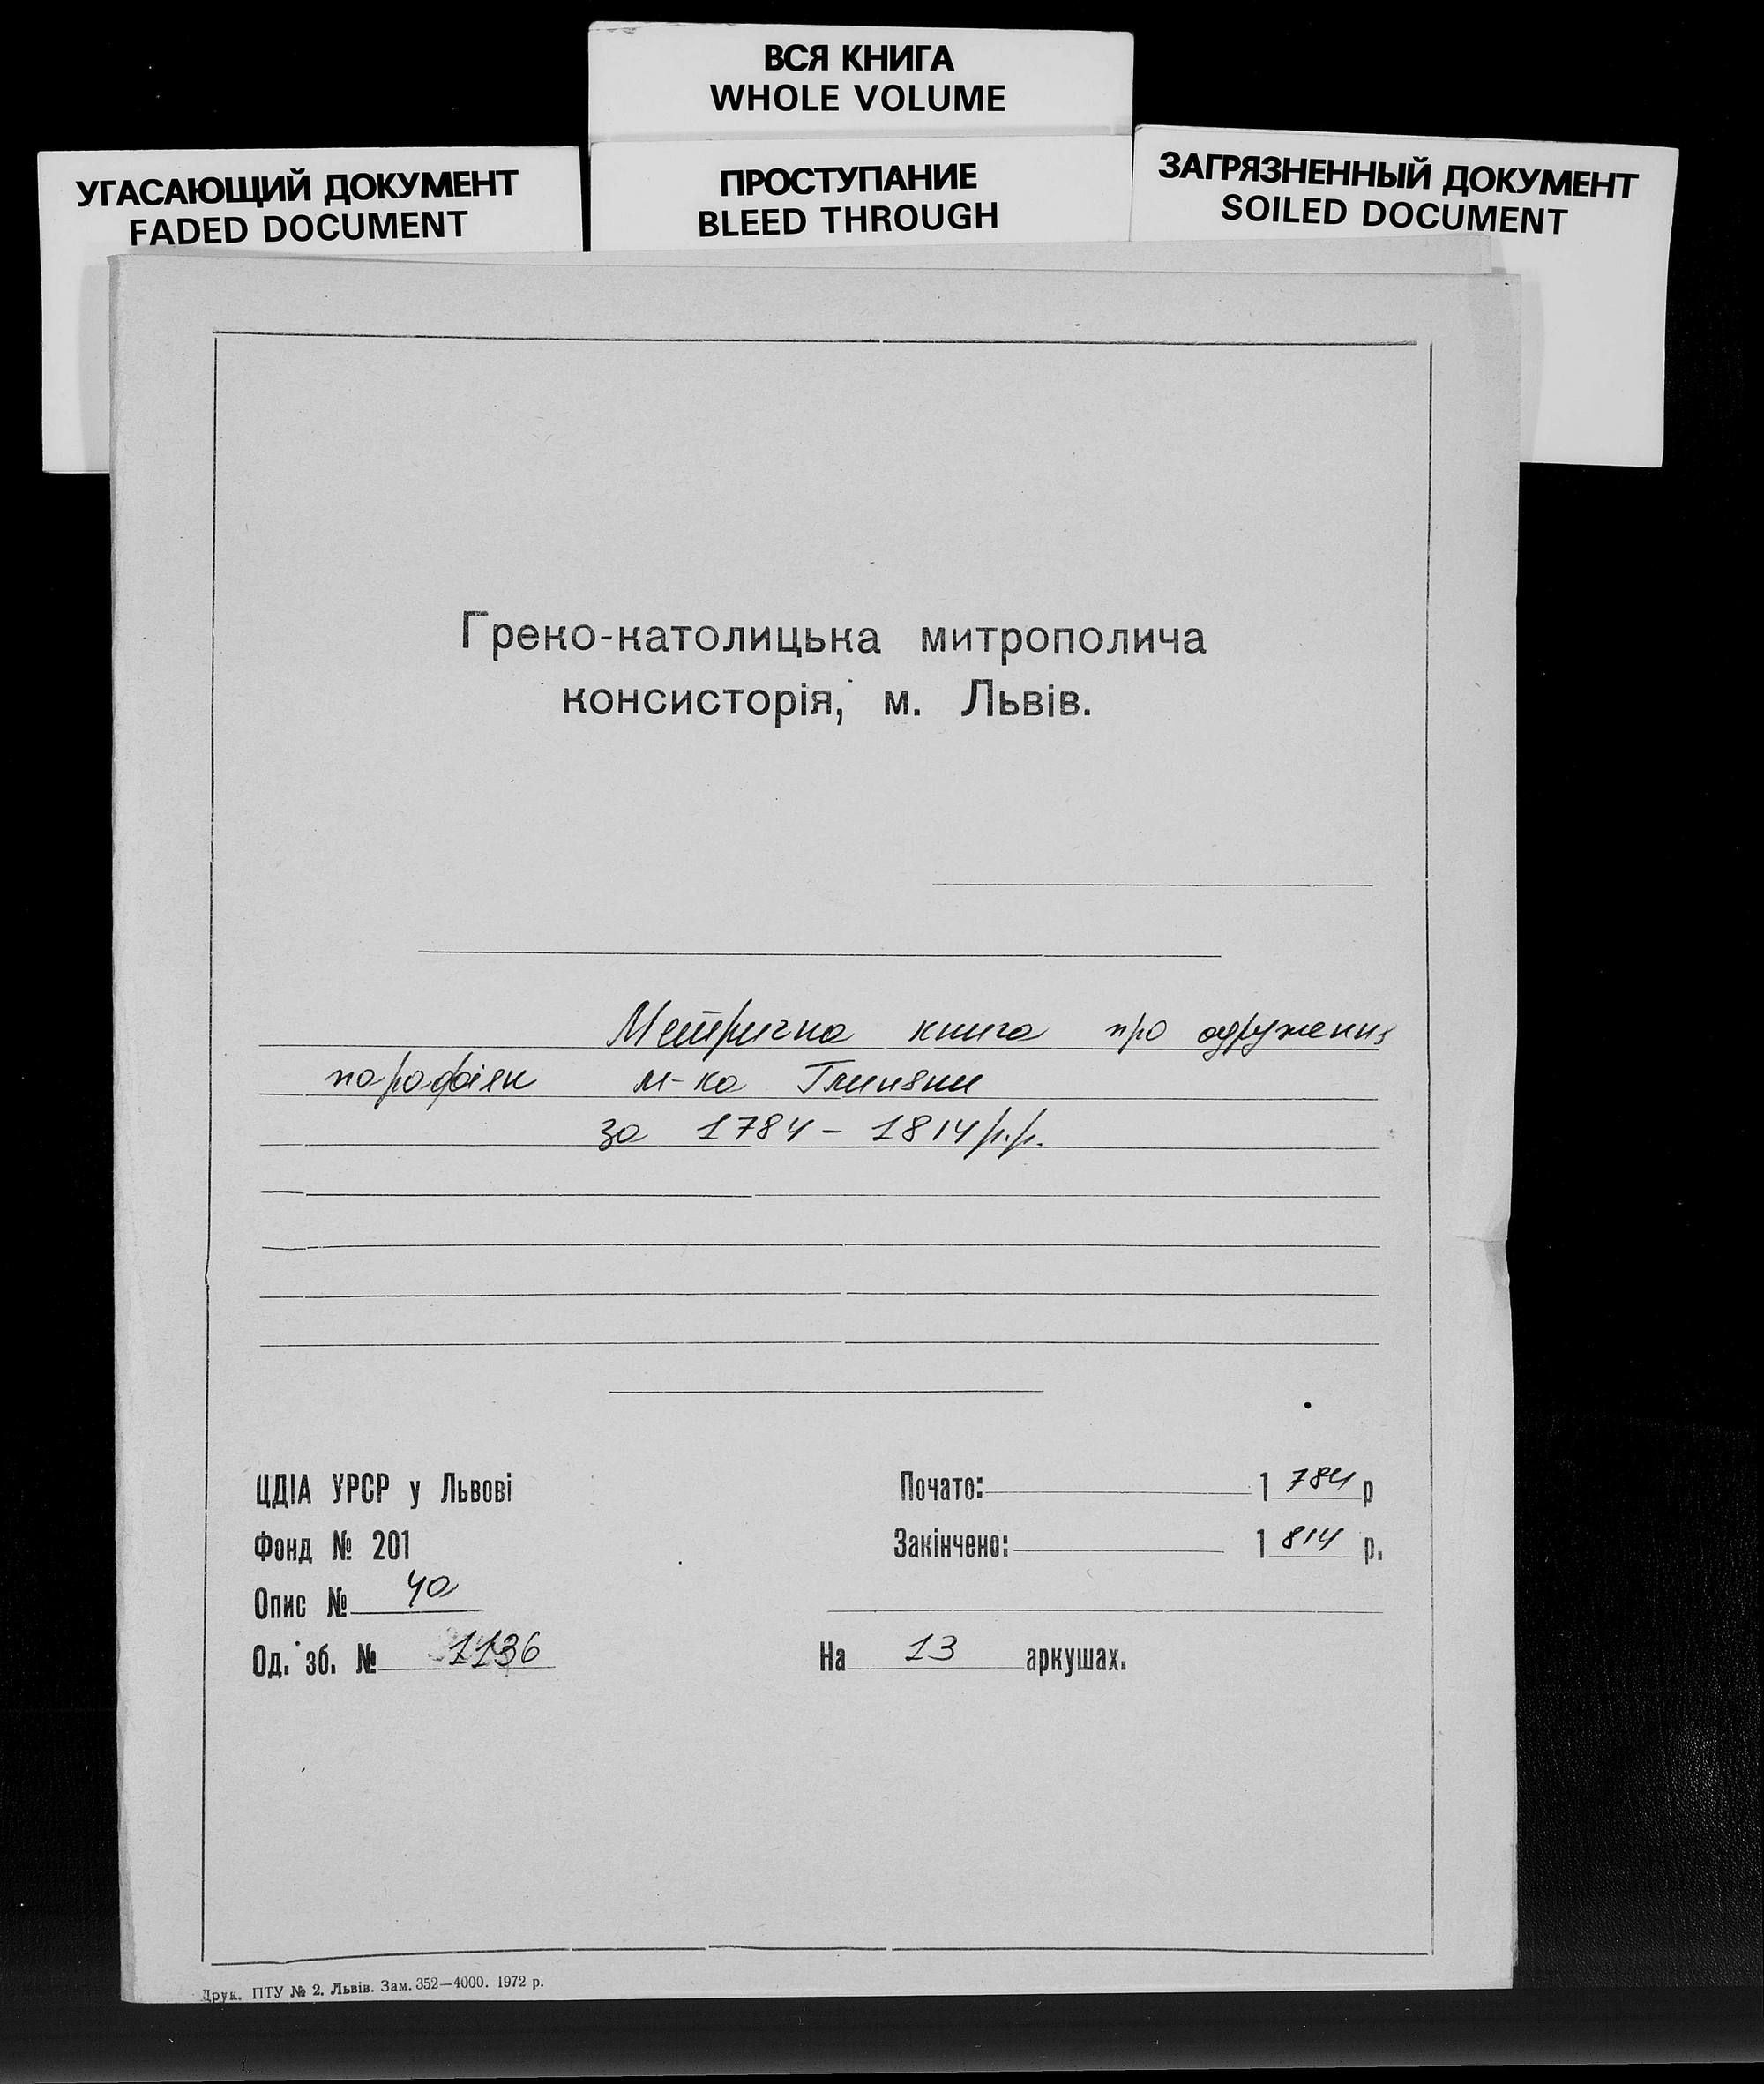 ВСЯ КНИГА
WHOLE VOLUME
УГАСАЮЩИЙ ДОКУМЕНТ
FADED DOCUMENT
ПРОСТУПАНИЕ
BLEED THROUGH
ЗАГРЯЗНЕННЫЙ ДОКУМЕНТ
SOILED DOCUMENT
Греко-католицька митрополича
консисторія, м. Львів.
Метрична книга про одруження
парафіян м-ка Глиняни
за 1784 - 1814 р.р.
ЦДІА УРСР у Львові
Фонд № 201
Опис № 4а
Од. зб. № 1136
Почато: 1784 р
Закінчено: 1814 р.
На 13 аркушах.
Друк. ПТУ № 2. Львів. Зам. 352—4000. 1972 р.